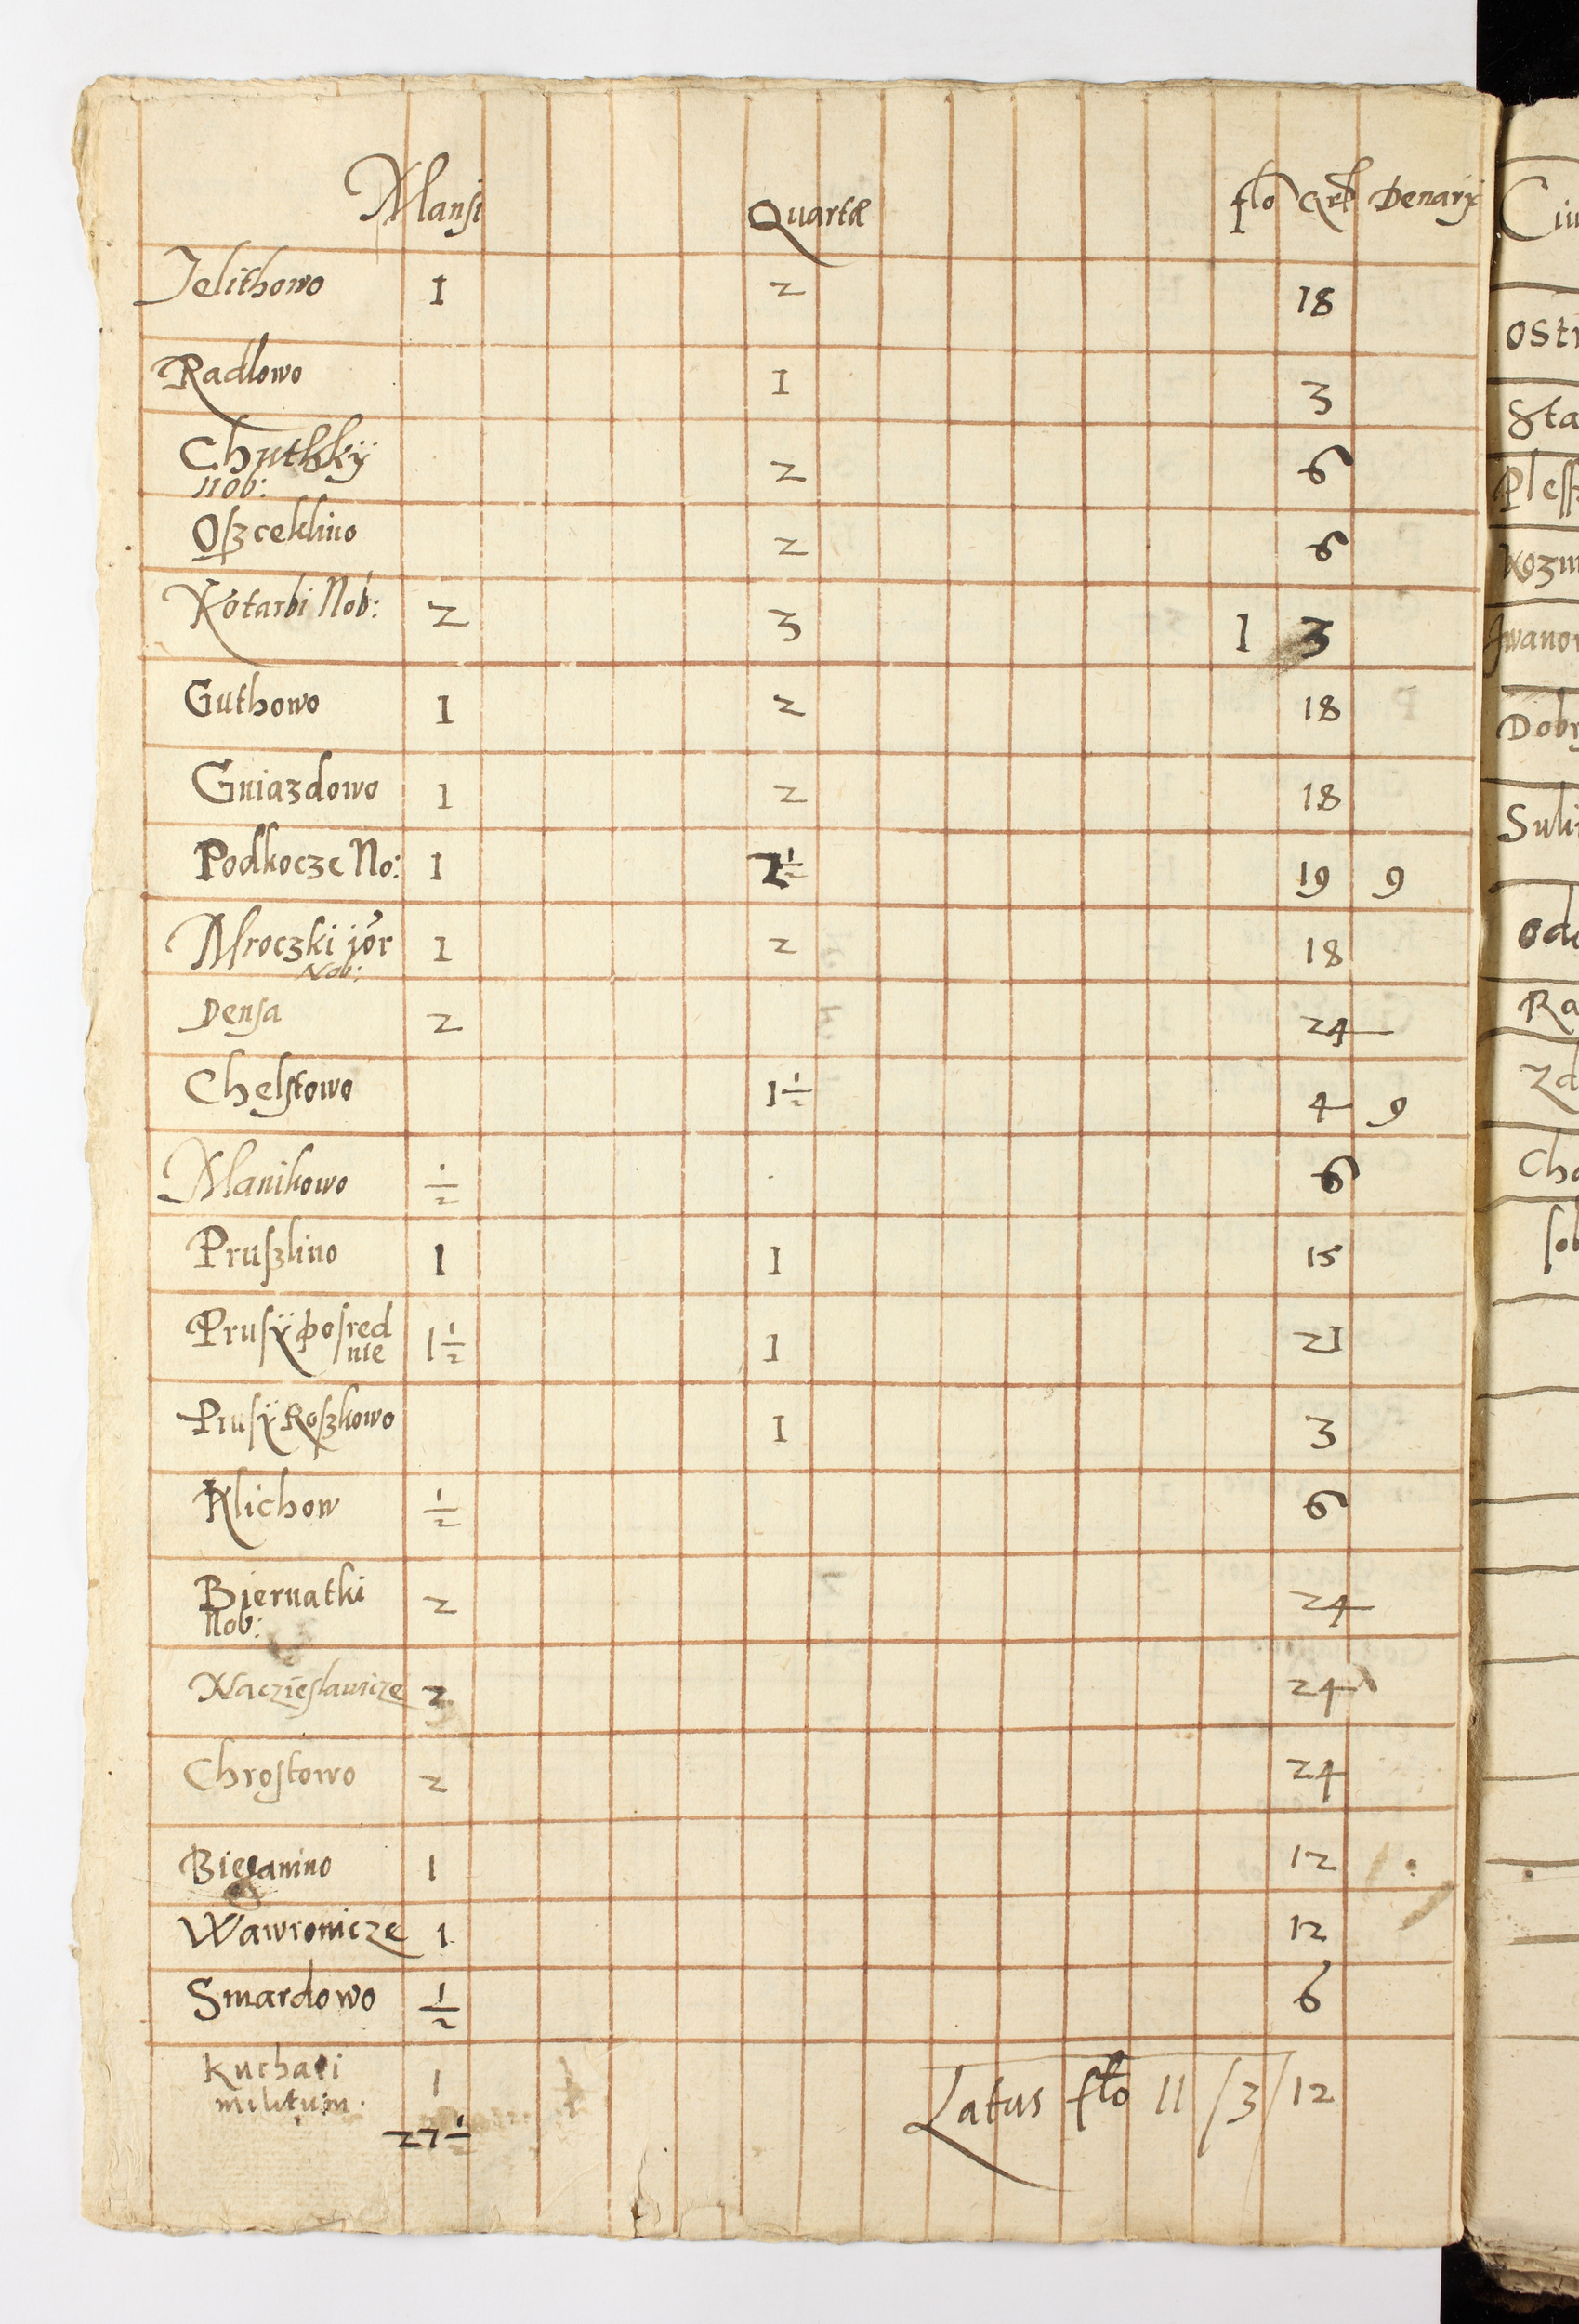 Mansi Quartæ flo grs Denarÿ
Jelithowo 1 2 18
Radlowo 1 3
Chuthkÿ 2 6
Nob:
Oſzceklino 2 6
Kotarbi Nob: 2 3 1 3
Guthowo 1 2 18
Gniazdowo 1 2 18
Podkocze No: 1 2½ 19 9
Mroczki jor 1 2 18
Nob:
Denſa 2 24
Chelſtowo 1½ 4 9
Manikowo ½ 6
Pruſzlino 1 1 15
Pruſÿ poſred
nie 1½ 1 21
Pruſÿ Koſzkowo 1 3
Klichow ½ 6
Biernatki 2 24
Nob:
Naczieſlawicze 2 24
Chroſtowo 2 24
Bieganino 1 12
Wawronicze 1 12
Smardowo ½ 6
Kuchari 1
militum.
27½
Latus flo 11 /3/ 12
Ciu
Ostr
Sta
Pleſſ
Kozm
Jwano
Dobr
Suli
Odo
Ra
Zd
Cho
ſob